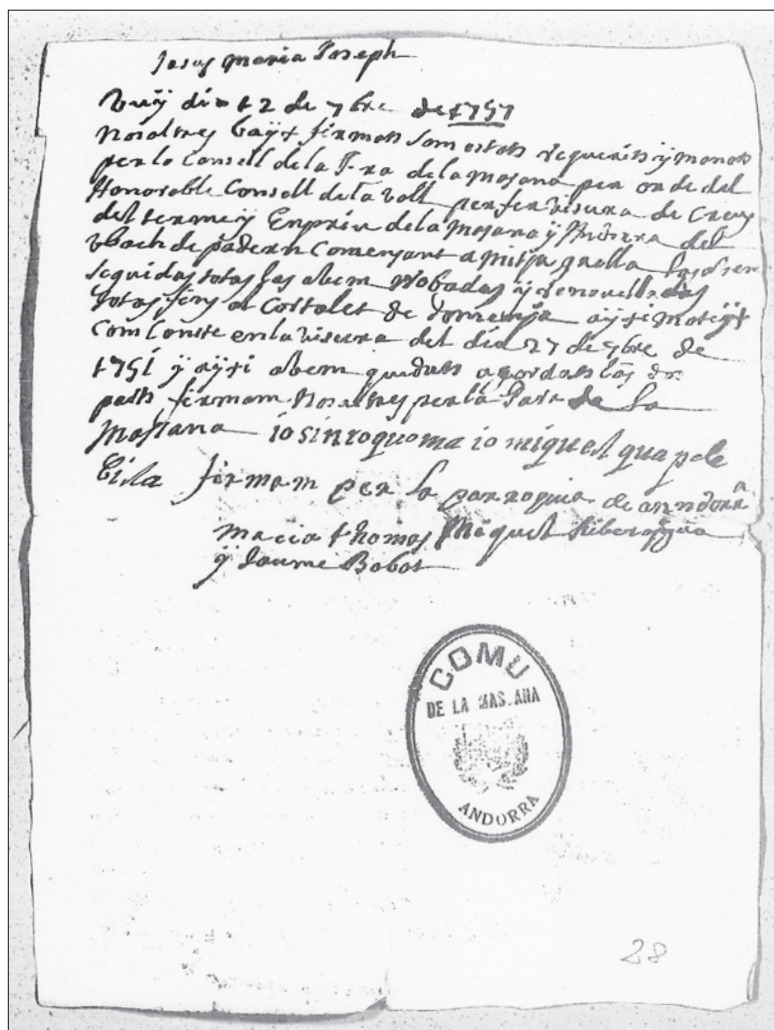 Jesus Maria Joseph
Vuÿ dia 12 de 7bre de 1757
Nosaltres baÿx firmats som estats requerits ÿ manats
per lo Consell de la Pra de la Masana per orde del
Honorable Consell de la Vall per fer visura de Creus
del terme ÿ Enpriu de la Masana ÿ
Vbach de padern Comensant a mitja
seguidas totas las abem trobadas ÿ renovelladas
totas fins al Cortalet de aÿxi mateÿx
Com Consta en la visura del dia 27 de 7bre de
1751 ÿ aÿxi abem quedats acordats las dos
parts firmam Nosaltres per la Para de la
Massana io sinto quoma io miquel
firmam per la parroquia de anndorra
macia thomas Miquel Riberaÿgua
ÿ Jaume Bobot
COMU
DE LA MAS.ANA
ANDORRA
28